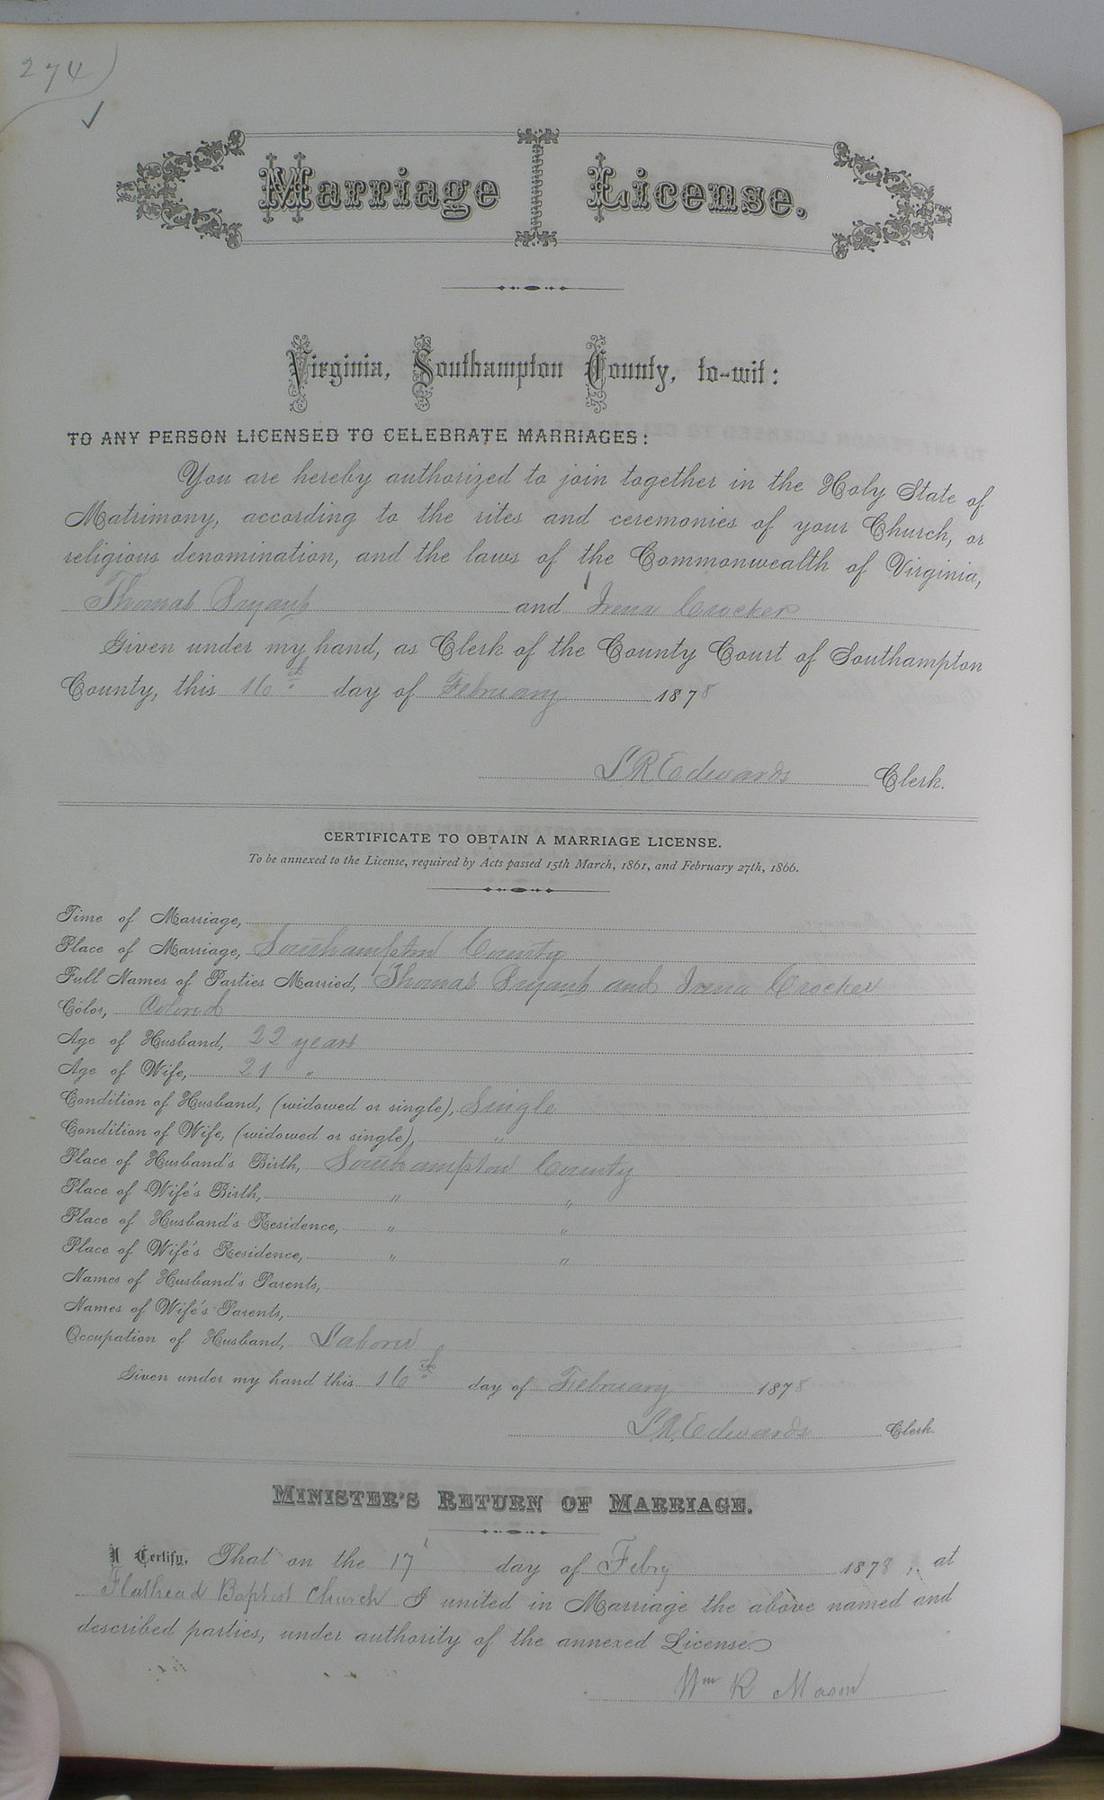 274
Marriage License.
Virginia, Southampton County, to-wit:
TO ANY PERSON LICENSED TO CELEBRATE MARRIAGES:
You are hereby authorized to join together in the Holy State of
Matrimony, according to the rites and ceremonies of your Church, or
religious denomination, and the laws of the Commonwealth of Virginia,
Thomas Bryant and Irena Crocker
Given under my hand, as Clerk of the County Court of Southampton
County, this 16th day of February 1878
L R Edwards Clerk.
CERTIFICATE TO OBTAIN A MARRIAGE LICENSE.
To be annexed to the License, required by Acts passed 15th March, 1861, and February 27th, 1866.
Time of Marriage,
Place of Marriage, Southampton County
Full Names of Parties Married, Thomas Bryant and Irena Crocker
Color, Colored
Age of Husband, 22 years
Age of Wife, 21 "
Condition of Husband, (widowed or single), Single
Condition of Wife, (widowed or single), "
Place of Husband's Birth, Southampton County
Place of Wife's Birth, " "
Place of Husband's Residence, " "
Place of Wife's Residence, " "
Names of Husband's Parents,
Names of Wife's Parents,
Occupation of Husband, Laborer
Given under my hand this 16th day of February 1878
L R. Edwards Clerk.
MINISTER'S RETURN OF MARRIAGE.
I Certify, That on the 17 day of Feby 1878, at
Flathead Baptist Church I united in Marriage the above named and
described parties, under authority of the annexed License.
Wm R Mason